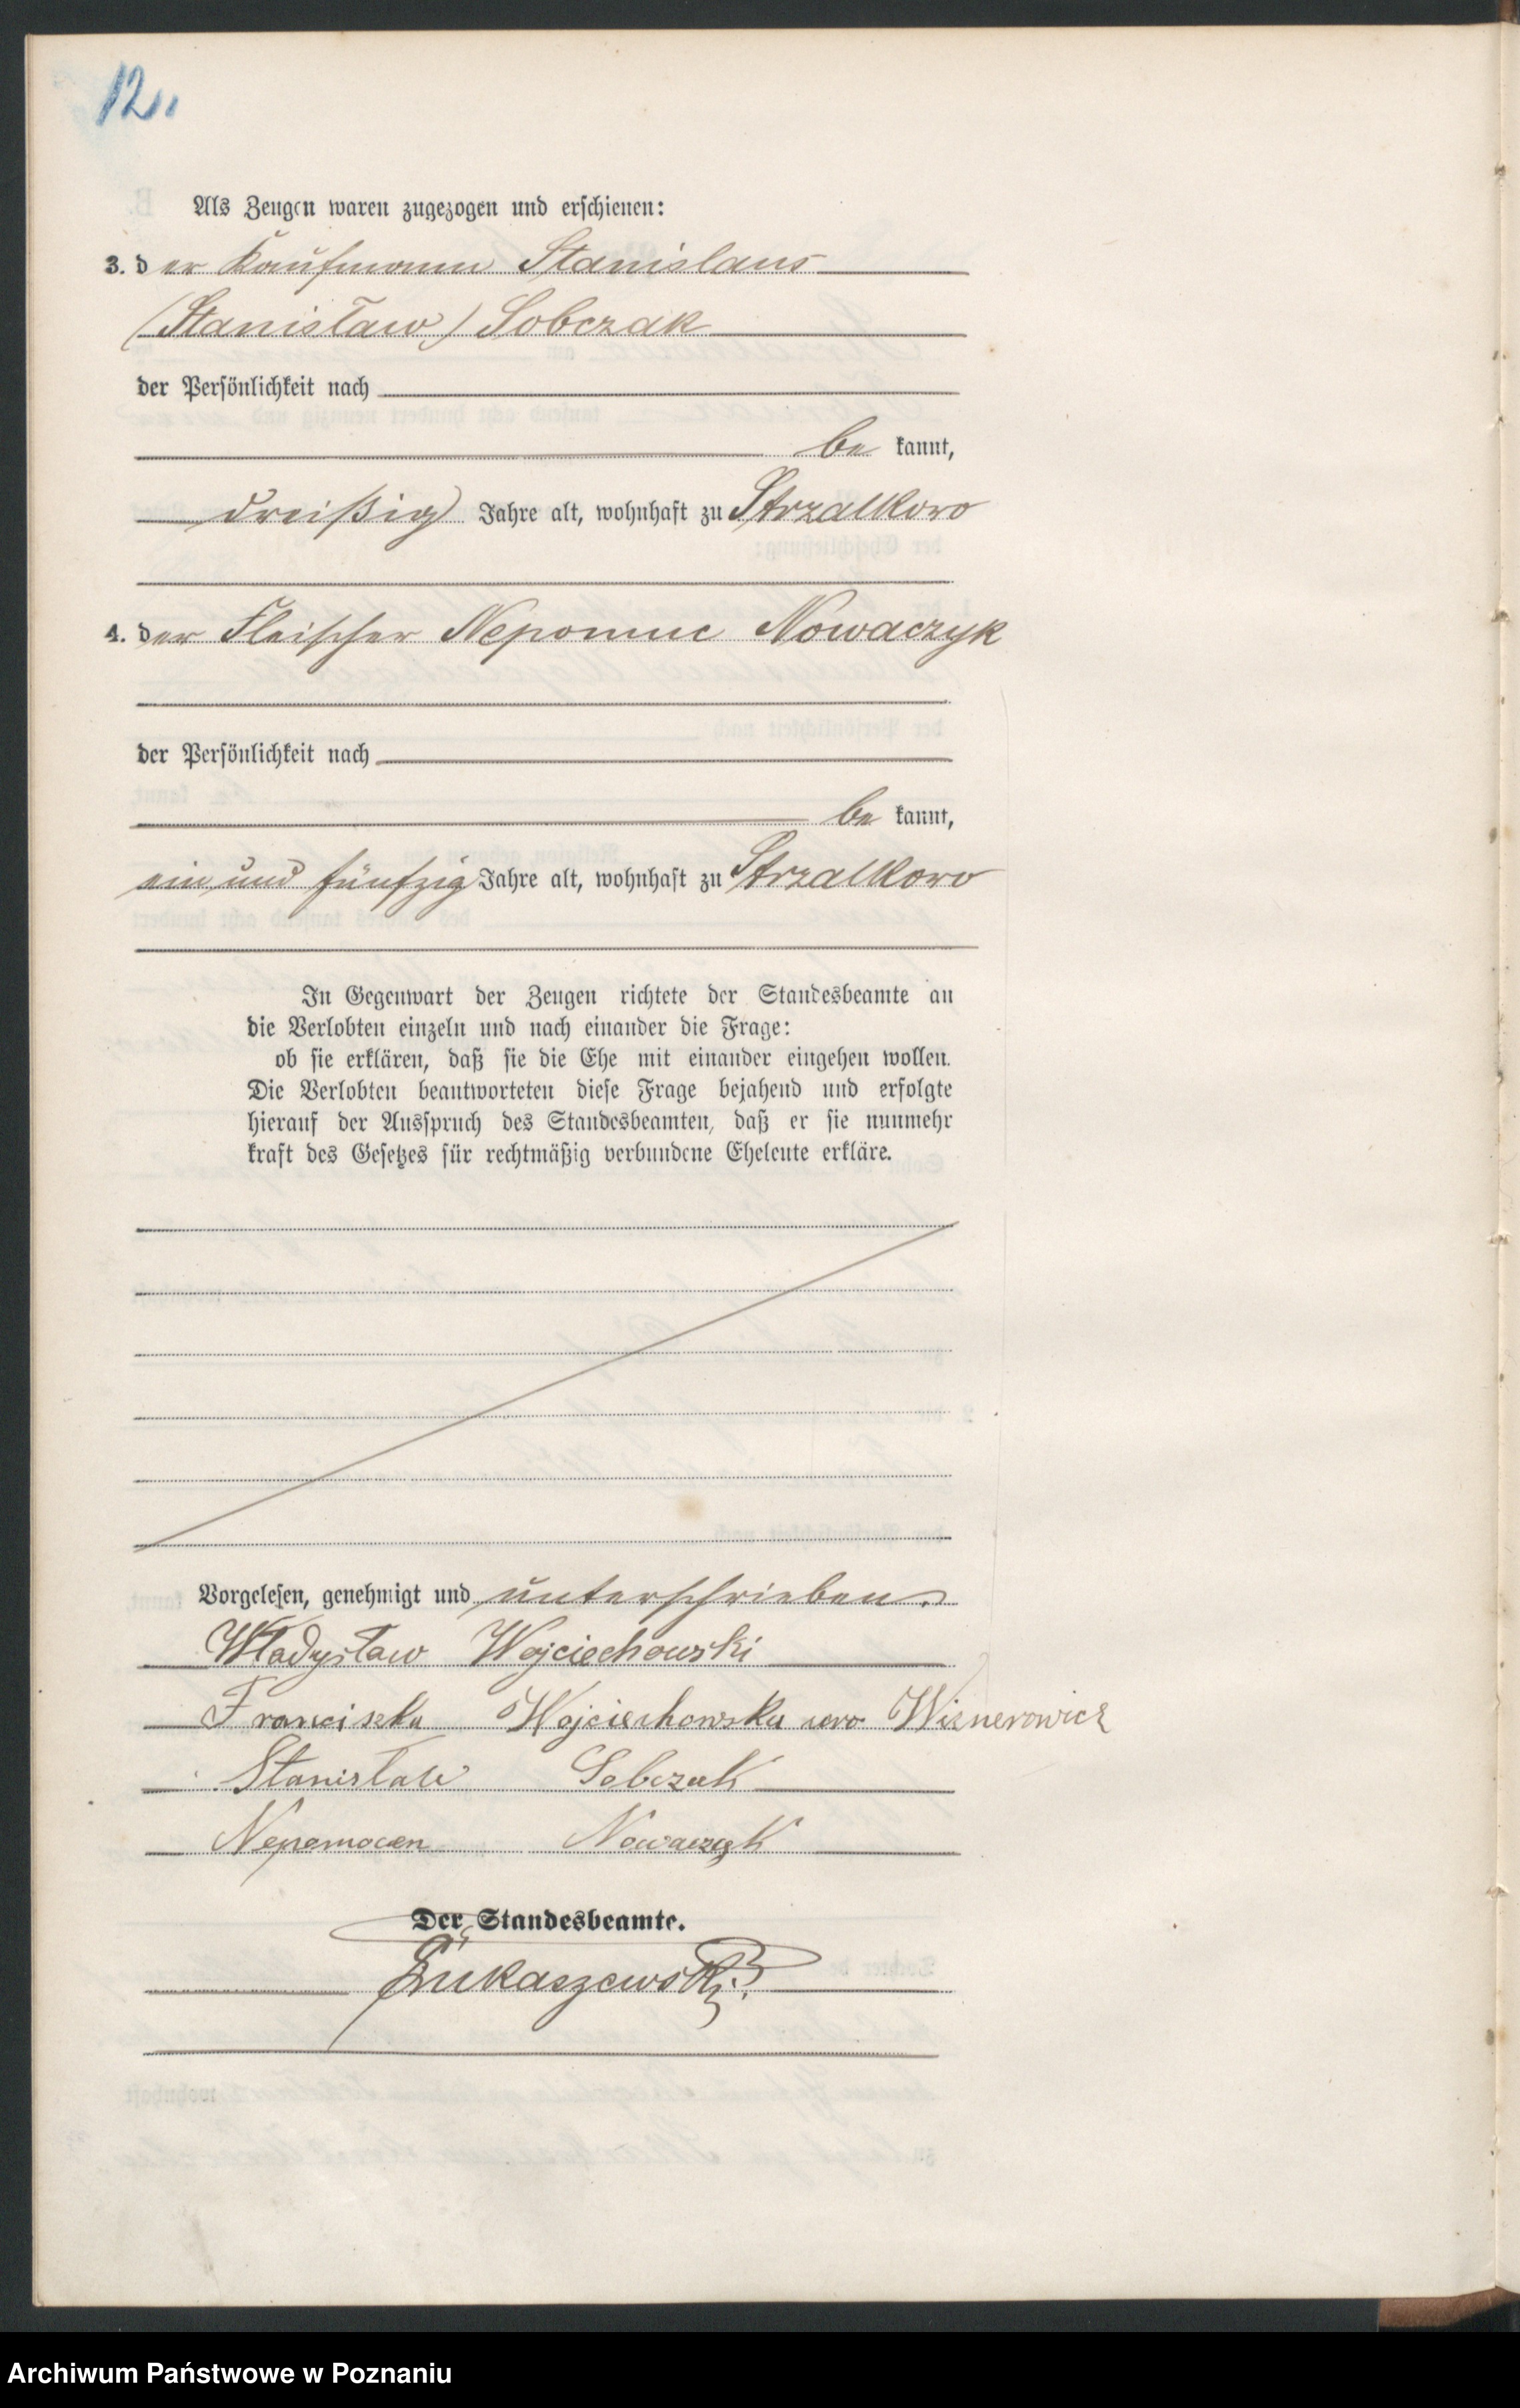 12.
Als Zeugen waren zugezogen und erschienen:
3. der Kaufmann Stanislaus
(Stanisław) Sobczak
der Persönlichkeit nach
be kannt,
dreißig Jahre alt, wohnhaft zu Strzalkowo
4. der Fleischer Nepomuc Nowaczyk
der Persönlichkeit nach
be kannt,
ein und fünfzig Jahre alt, wohnhaft zu Strzalkowo
In Gegenwart der Zeugen richtete der Standesbeamte an
die Verlobten einzeln und nach einander die Frage:
ob sie erklären, daß sie die Ehe mit einander eingehen wollen.
Die Verlobten beantworteten diese Frage bejahend und erfolgte
hierauf der Ausspruch des Standesbeamten, daß er sie nunmehr
kraft des Gesetzes für rechtmäßig verbundene Eheleute erkläre.
Vorgelesen, genehmigt und unterschrieben.
Władysław Wojciechowski
Franciszka Wojciechowska Wiznerowicz
Stanisław Sobczak
Nepomucen Nowaczyk
Der Standesbeamte.
Łukaszewski.
Archiwum Państwowe w Poznaniu